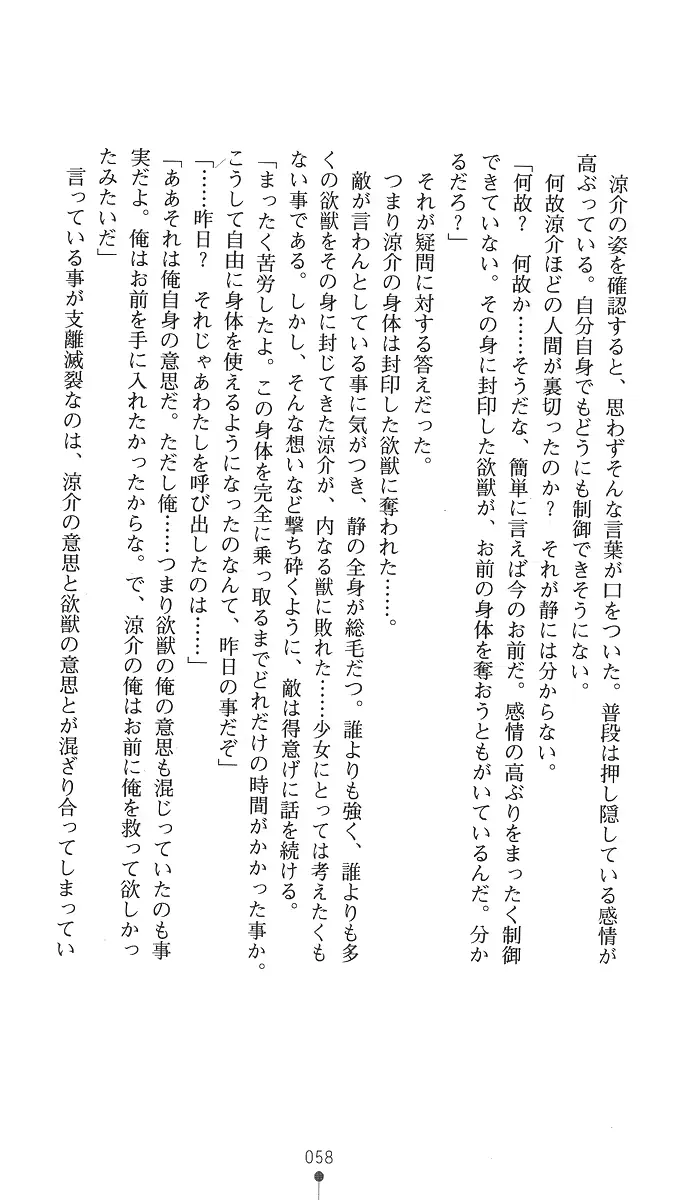 涼介の姿を確認すると、思わずそんな言葉が口をついた。普段は押し隠している感情が
高ぶっている。自分自身でもどうにも制御できそうにない。
何故涼介ほどの人間が裏切ったのか？　それが静には分からない。
「何故？　何故か……そうだな、簡単に言えば今のお前だ。感情の高ぶりをまったく制御
できていない。その身に封印した欲獣が、お前の身体を奪おうともがいているんだ。分か
るだろ？」
それが疑問に対する答えだった。
つまり涼介の身体は封印した欲獣に奪われた……。
敵が言わんとしている事に気がつき、静の全身が総毛だつ。誰よりも強く、誰よりも多
くの欲獣をその身に封じてきた涼介が、内なる獣に敗れた……少女にとっては考えたくも
ない事である。しかし、そんな想いなど撃ち砕くように、敵は得意げに話を続ける。
「まったく苦労したよ。この身体を完全に乗っ取るまでどれだけの時間がかかった事か。
こうして自由に身体を使えるようになったのなんて、昨日の事だぞ」
「……昨日？　それじゃあわたしを呼び出したのは……」
「ああそれは俺自身の意思だ。ただし俺……つまり欲獣の俺の意思も混じっていたのも事
実だよ。俺はお前を手に入れたかったからな。で、涼介の俺はお前に俺を救って欲しかっ
たみたいだ」
言っている事が支離滅裂なのは、涼介の意思と欲獣の意思とが混ざり合ってしまってい
058